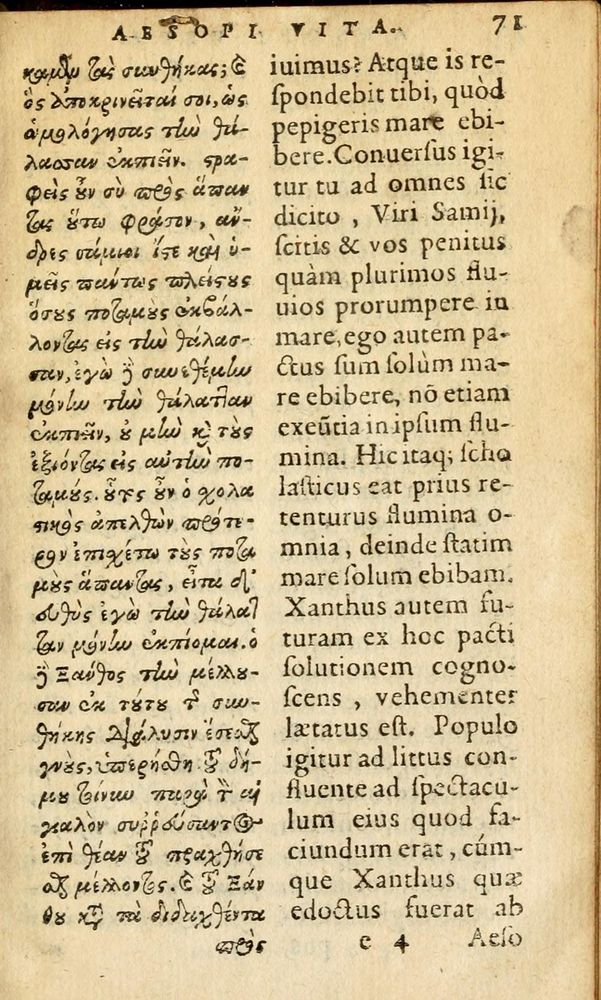 AESOPI VITA. 71
καμεν τὰς συνθήκας; καὶ
ὃς ἀποκρινεῖταί σοι, ὡς
ὁμολόγησας τὴν θά-
λασσαν ἐκπιεῖν. στρα-
φεὶς οὖν σὺ πρὸς ἅπαν
τας οὕτω φράσον, ἄν-
δρες σάμιοι ἴστε καὶ ὑ-
μεῖς πάντως πλείστους
ὅσους ποταμοὺς ἐκβάλ-
λοντας εἰς τὴν θάλασ-
σαν, ἐγὼ δὲ συνεθέμην
μόνην τὴν θάλατταν
ἐκπιεῖν, οὐ μὴν καὶ τοὺς
ἐξιόντας εἰς αὐτὴν πο-
ταμούς. οὗτος οὖν ὁ σχολα
στικὸς ἀπελθὼν πρότε-
ρον ἐπιχέτω τοὺς ποτα
μοὺς ἅπαντας, εἶτα δ'
εὐθὺς ἐγὼ τὴν θάλατ
ταν μόνην ἐκπίομαι. ὁ
δὲ Ξάνθος τὴν μέλλου-
σαν ἐκ τούτου τῆς συν-
θήκης διάλυσιν ἔσεσθαι
γνοὺς, ὑπερήσθη τοῦ δή-
μου τοίνυν παρὰ τὸν αἰ
γιαλὸν συῤῥεύσαντος
ἐπὶ θέαν τοῦ πραχθήσε
σθαι μέλλοντος. καὶ τοῦ Ξάν
θου κατὰ τὰ διδαχθέντα
πρὸς
iuimus? Atque is re-
spondebit tibi, quòd
pepigeris mare ebi-
bere. Conuersus igi-
tur tu ad omnes sic
dicito, Viri Samij,
scitis & vos penitus
quàm plurimos flu-
uios prorumpere in
mare, ego autem pa-
ctus sum solùm ma-
re ebibere, nõ etiam
exeũtia in ipsum flu-
mina. Hic itaq; scho
lasticus eat prius re-
tenturus flumina o-
mnia, deinde statim
mare solum ebibam.
Xanthus autem fu-
turam ex hoc pacti
solutionem cogno-
scens, vehementer
lætatus est. Populo
igitur ad littus con-
fluente ad spectacu-
lum eius quod fa-
ciundum erat, cúm-
que Xanthus quæ
edoctus fuerat ab
e 4 Aeso